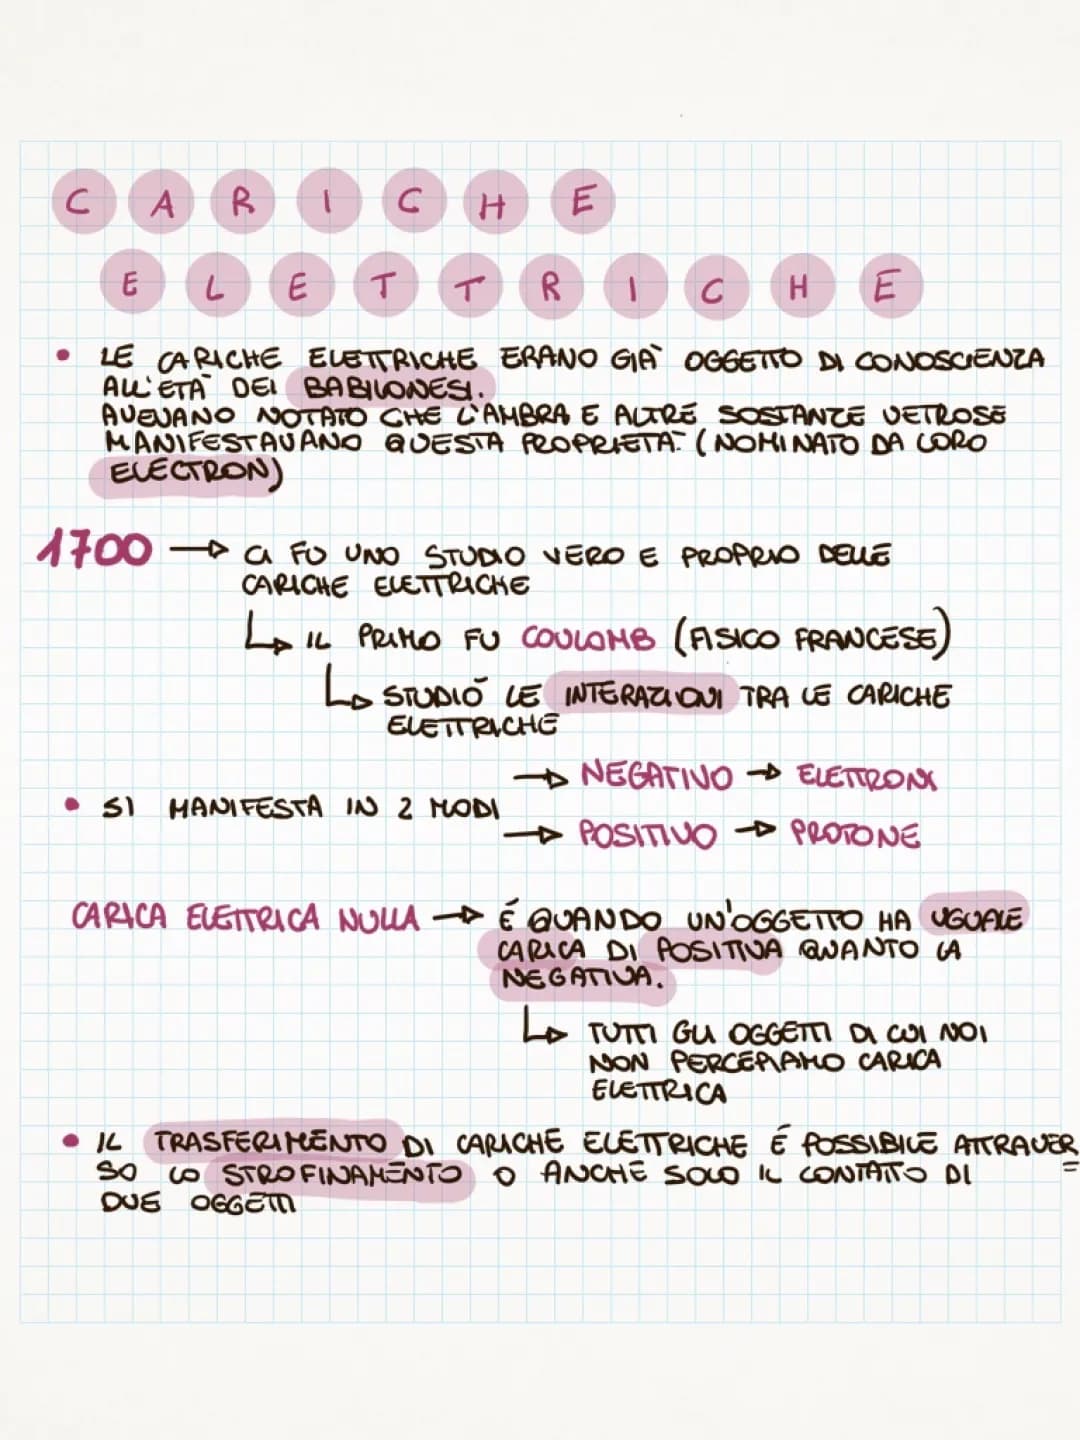 CARICHE
ELETTRICHE
• LE CARICHE ELETTRICHE ERANO GIÀ OGGETTO DI CONOSCIENZA
ALL'ETÀ DEI BABILONESI.
AVEVANO NOTATO CHE L'AMBRA E ALTRE SOSTANZE VETROSE
MANIFESTAVANO QUESTA PROPRIETÀ. (NOMINATO DA LORO
ELECTRON)
1700 → CI FU UNO STUDIO VERO E PROPRIO DELLE
CARICHE ELETTRICHE
↳ IL PRIMO FU COULOMB (FISICO FRANCESE)
↳ STUDIÒ LE INTERAZIONI TRA LE CARICHE
ELETTRICHE
→ NEGATIVO → ELETTRONI
• SI MANIFESTA IN 2 MODI
→ POSITIVO → PROTONE
CARICA ELETTRICA NULLA → É QUANDO UN'OGGETTO HA UGUALE
CARICA DI POSITIVA QUANTO LA
NEGATIVA.
↳ TUTTI GLI OGGETTI DI CUI NOI
NON PERCEPIAMO CARICA
ELETTRICA
• IL TRASFERIMENTO DI CARICHE ELETTRICHE É POSSIBILE ATTRAVER=
SO LO STROFINAMENTO O ANCHE SOLO IL CONTATO DI
DUE OGGETTI